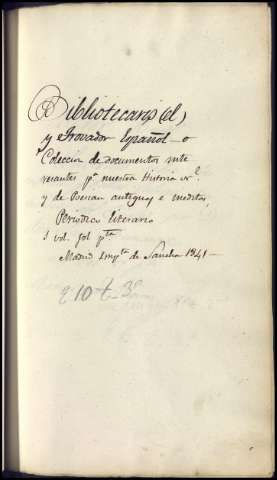 Bibliotecario (el)
y Trovador Español_o
Coleccion de documentos inte
resantes pª nuestra Historia
y de Poesias antiguas e ineditas
Periodico literario
1 vol. fol. pta
Madrid Impta de Sancha 1841_